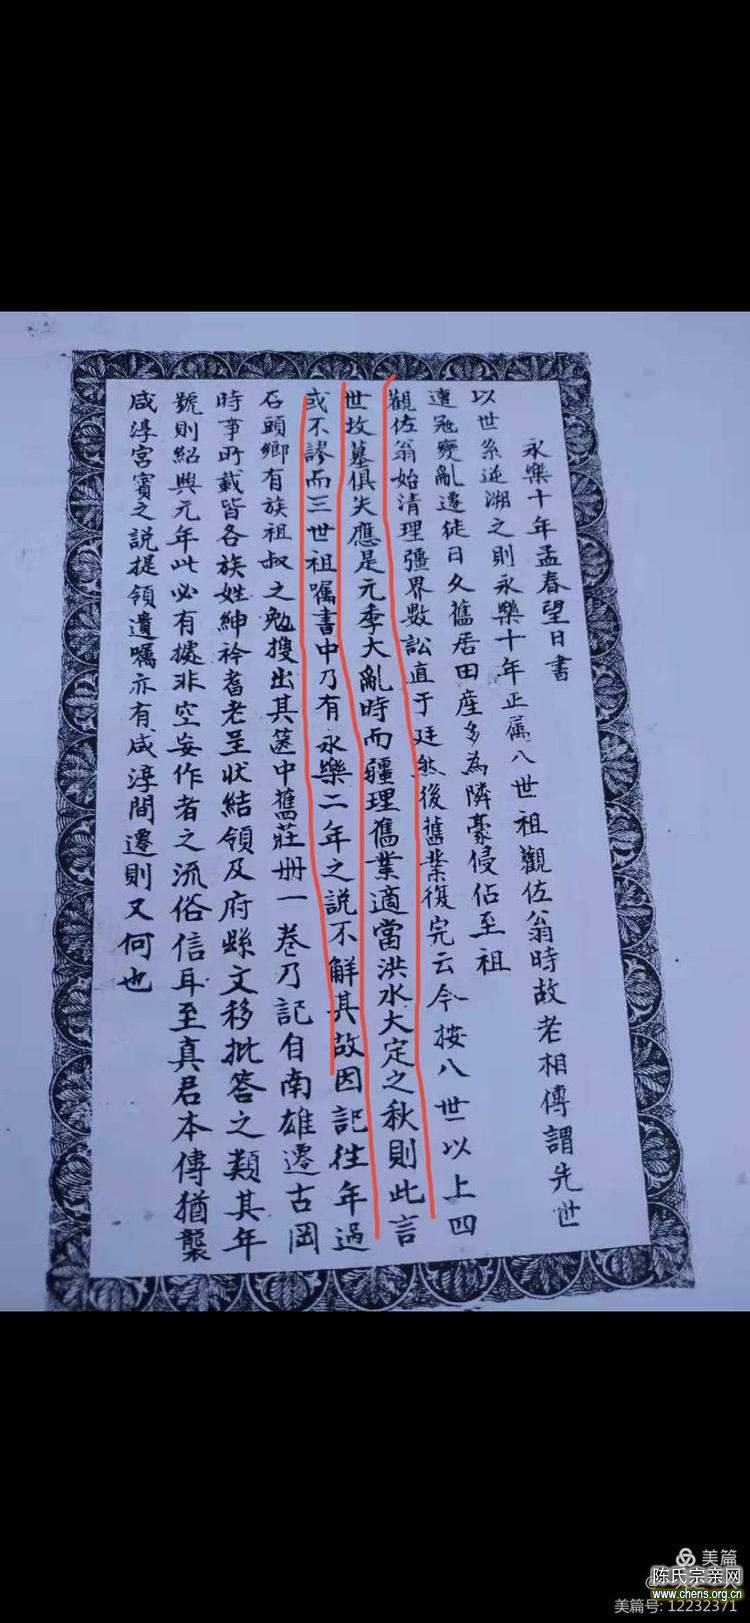 永樂十年孟春望日書
以世系逆溯之則永樂十年正屬八世祖觀佐翁時故老相傳謂先世
遭冠變亂遷徒日久舊居田產多為隣豪侵佔至祖
觀佐翁始清理疆界數訟直于廷然後舊業復完云今按八世以上四
世坟墓俱失應是元季大亂時而疆理舊業適當洪水大定之秋則此言
或不謬而三世祖嘱書中乃有永樂二年之説不解其故因記徃年過
石頭鄉有族祖叔之勉搜出其篋中舊莊册一卷乃記自南雄遷古岡
時事所載皆各族姓紳衿耆老呈狀結領及府縣文移批答之類其年
號則紹興元年此必有據非空妄作者之流俗信耳至真君本傳猶襲
咸淳宮賓之説提領遺嘱亦有咸淳間遷則又何也
美篇
陈氏宗亲网
www.chens.org.cn
美篇号: 12232371